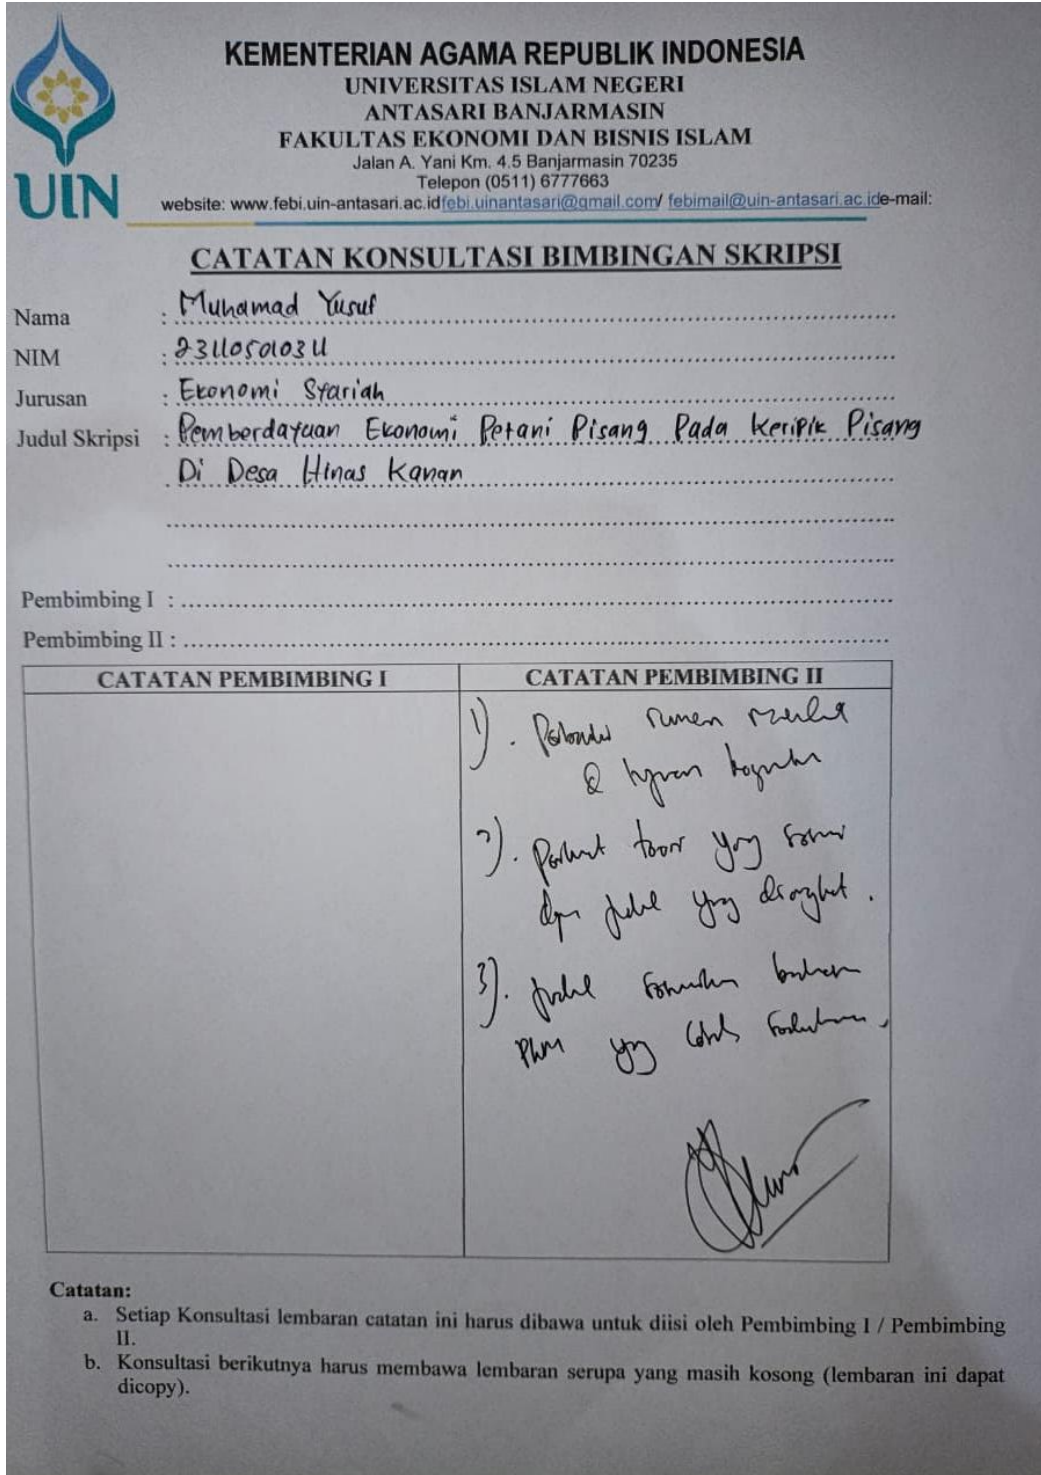 KEMENTERIAN AGAMA REPUBLIK INDONESIA
UNIVERSITAS ISLAM NEGERI
ANTASARI BANJARMASIN
FAKULTAS EKONOMI DAN BISNIS ISLAM
Jalan A. Yani Km. 4.5 Banjarmasin 70235
Telepon (0511) 6777663
UIN
website: www.febi.uin-antasari.ac.idfebi.uinantasari@gmail.com/ febimail@uin-antasari.ac.ide-mail:
CATATAN KONSULTASI BIMBINGAN SKRIPSI
Nama : Muhamad Yusuf
NIM :
Jurusan : Ekonomi Syariah
Judul Skripsi : Pemberdayaan Ekonomi Petani Pisang Pada Keripik Pisang
Di Desa Hinas Kanan
Pembimbing I :
Pembimbing II :
CATATAN PEMBIMBING I
CATATAN PEMBIMBING II
1).
&
2). yang
judul yang diangkat.
3). judul
yg
Catatan:
a. Setiap Konsultasi lembaran catatan ini harus dibawa untuk diisi oleh Pembimbing I / Pembimbing
II.
b. Konsultasi berikutnya harus membawa lembaran serupa yang masih kosong (lembaran ini dapat
dicopy).